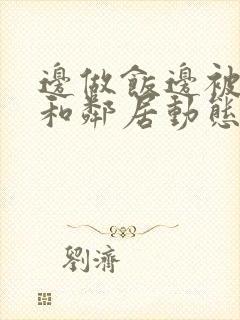 邊做飯邊被
和鄰居動態
劉濟